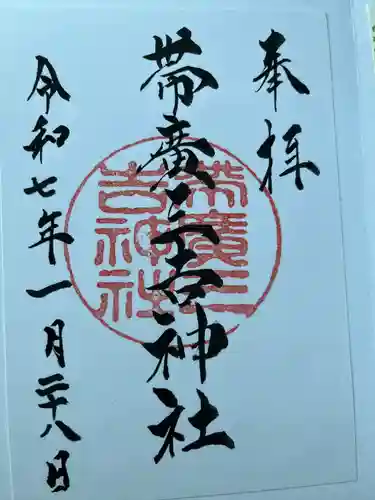 奉拝
帯廣三吉神社
帯廣三吉神社
令和七年一月二十八日